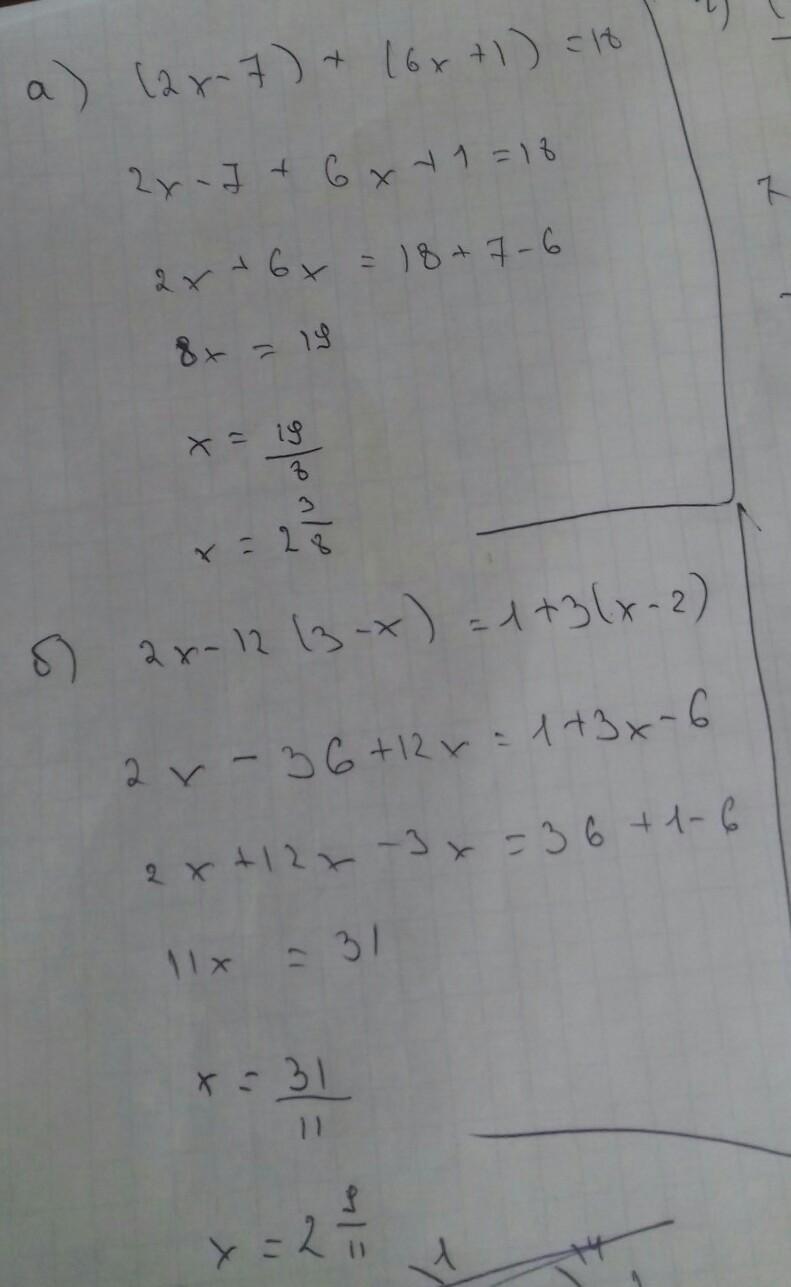 а) (2x-7) + (6x+1) = 18
2x-7 + 6x+1 = 18
2x+6x = 18+7-6
8x = 19
x = 19/8
x = 2 3/8
б) 2x-12(3-x) = 1+3(x-2)
2x-36+12x = 1+3x-6
2x+12x-3x = 36+1-6
11x = 31
x = 31/11
x = 2 9/11
7